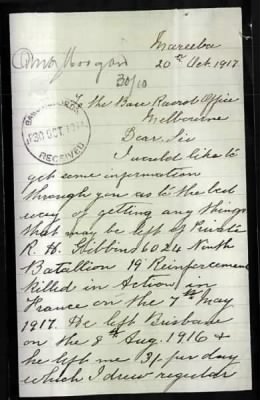 Mareeba
20th Oct. 1917
30/10
To the Base Record Office
Melbourne
Dear Sir
I would like to
get some information
through you as to the best
way of getting any things
that may be left of Private
R. H. Stibbins 6024 Ninth
Batallion 19 Reinforcement
killed in Action in
France on the 7th May
1917. He left Brisbane
on the 8th Aug. 1916 &
he left me 3/- per day
which I drew regular
30 OCT 1917
RECEIVED